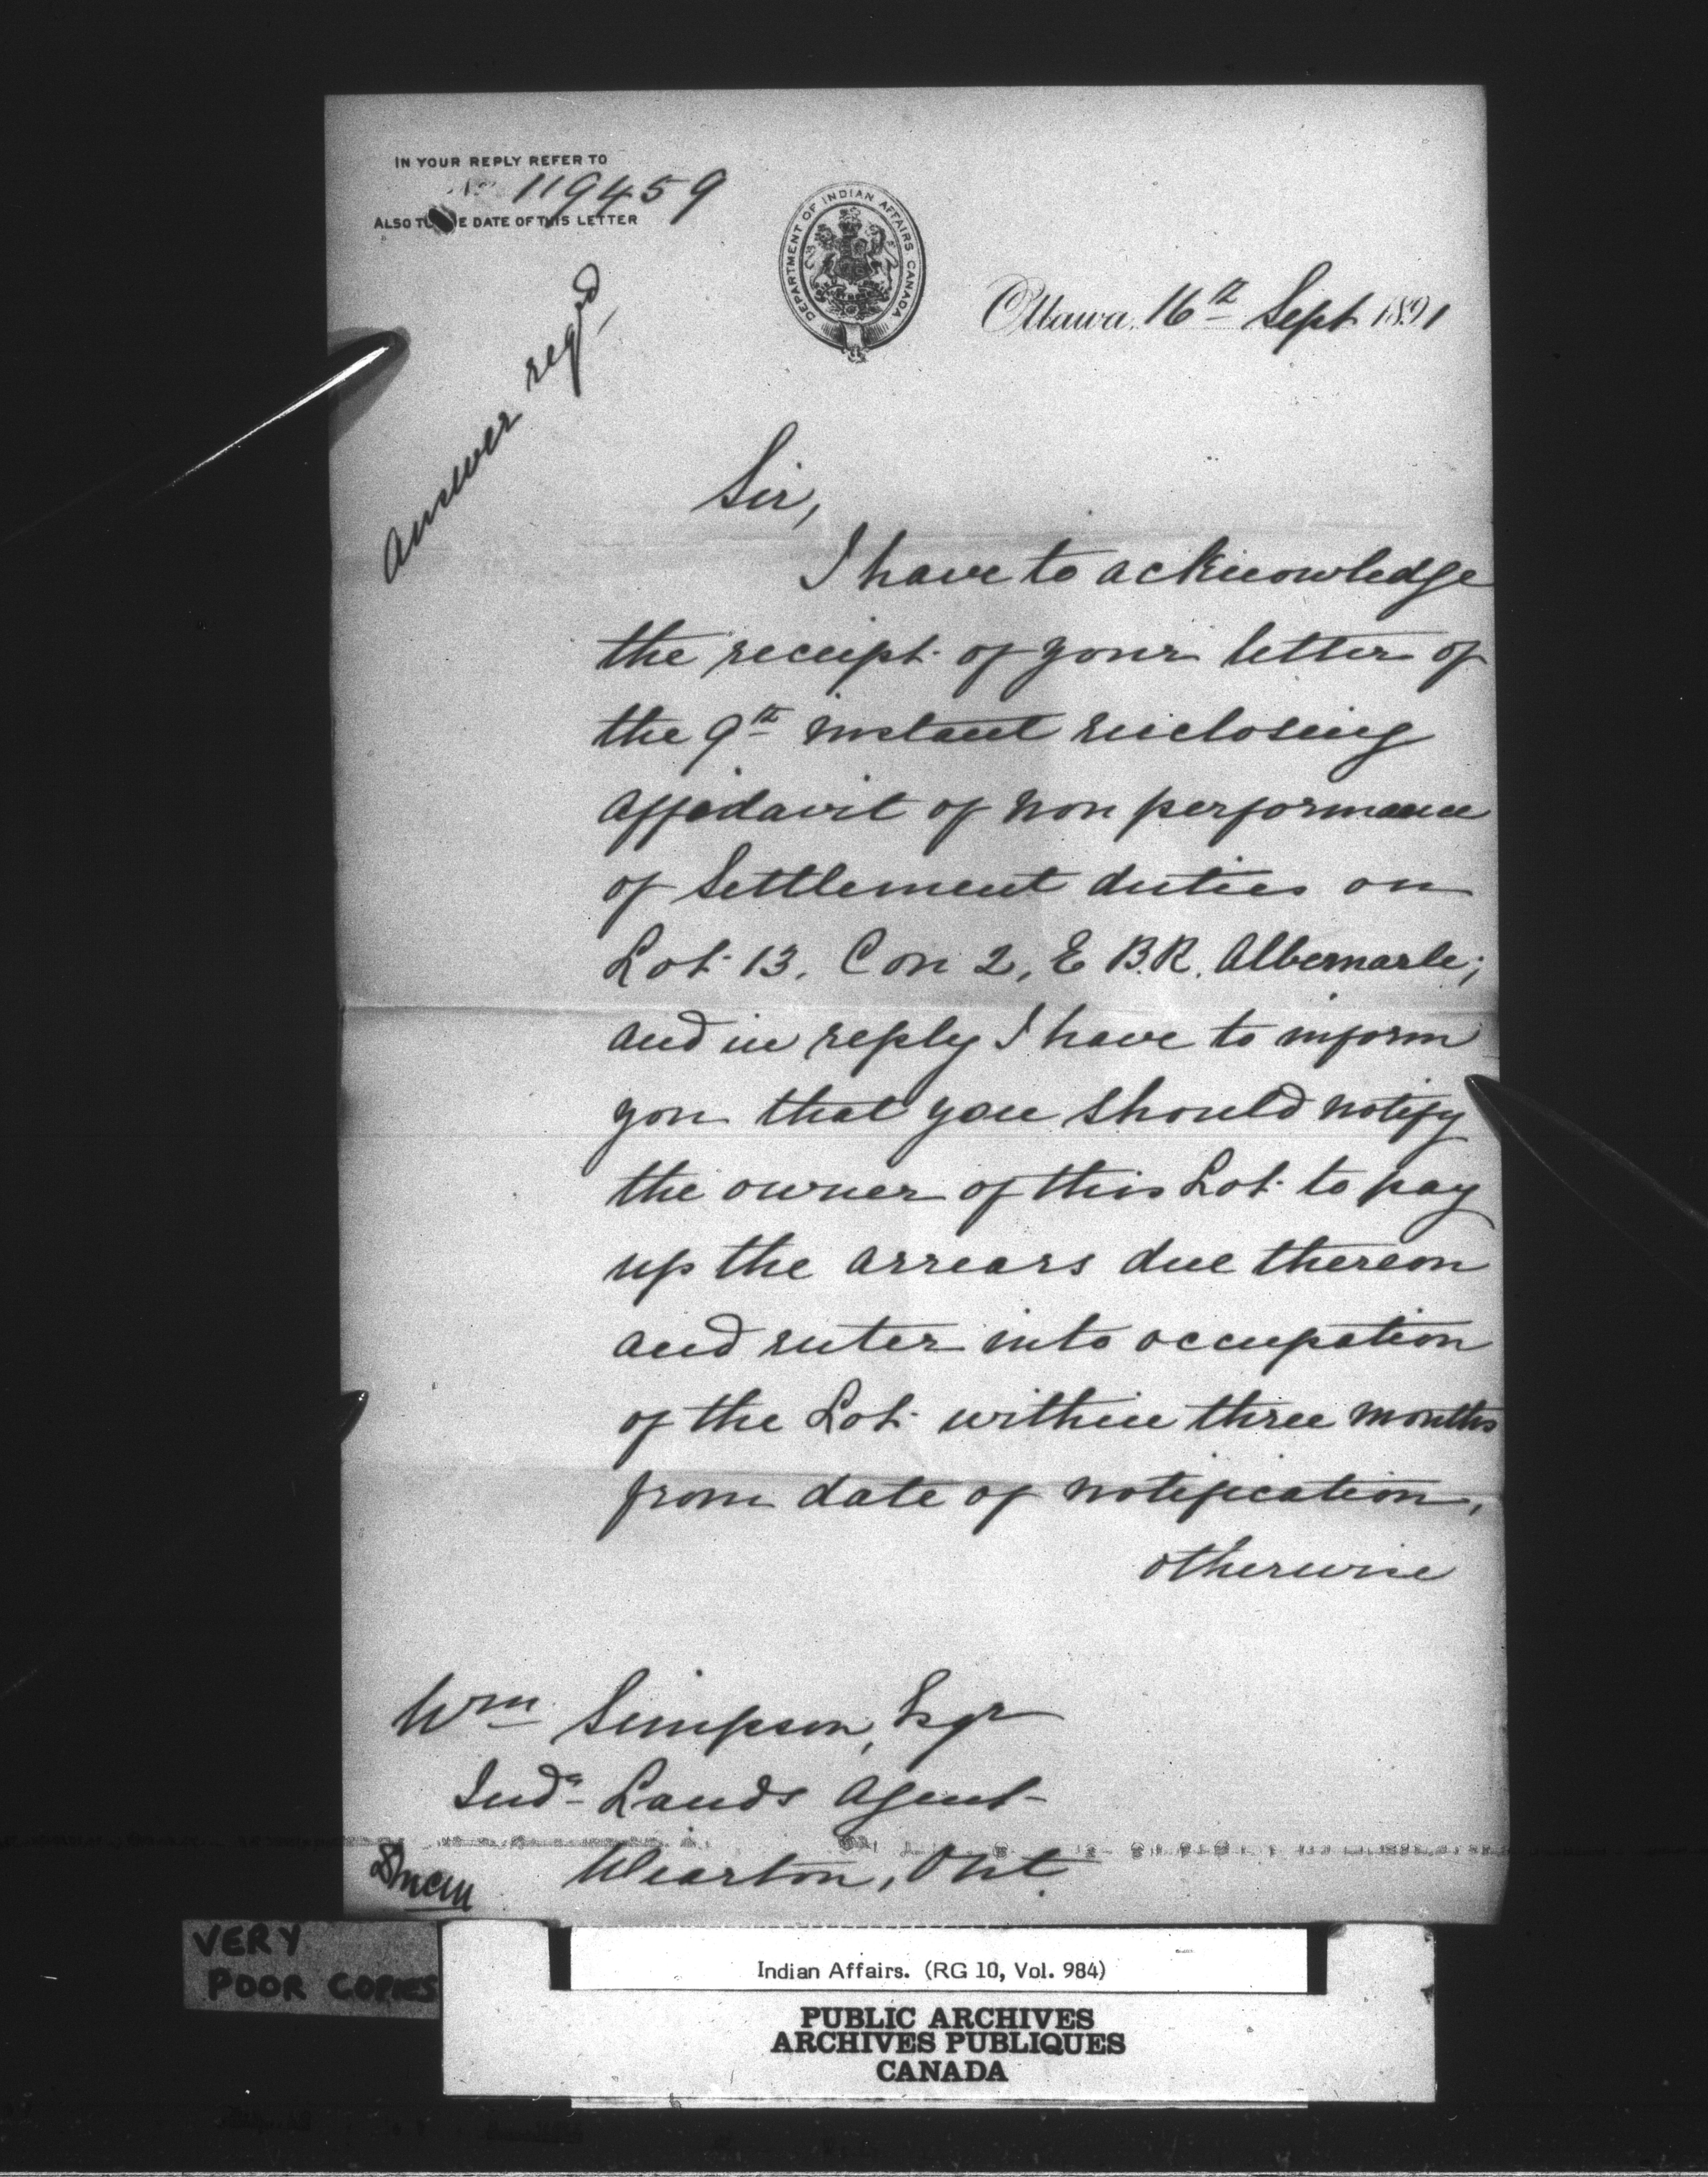 IN YOUR REPLY REFER TO
No. 119459
ALSO TO THE DATE OF THIS LETTER
DEPARTMENT OF INDIAN AFFAIRS CANADA
Ottawa, 16th Sept 1891
Answer reqd
Sir,
I have to acknowledge
the receipt of your letter of
the 9th instant enclosing
affidavit of non performance
of Settlement duties on
Lot 13, Con 2, E B.R. Albemarle;
and in reply I have to inform
you that you should notify
the owner of this Lot to pay
up the arrears due thereon
and enter into occupation
of the Lot within three months
from date of notification,
otherwise
Wm Simpson, Esqr
Indn Lands Agent
Wiarton, Ont.
VERY
POOR COPIES
Indian Affairs. (RG 10, Vol. 984)
PUBLIC ARCHIVES
ARCHIVES PUBLIQUES
CANADA